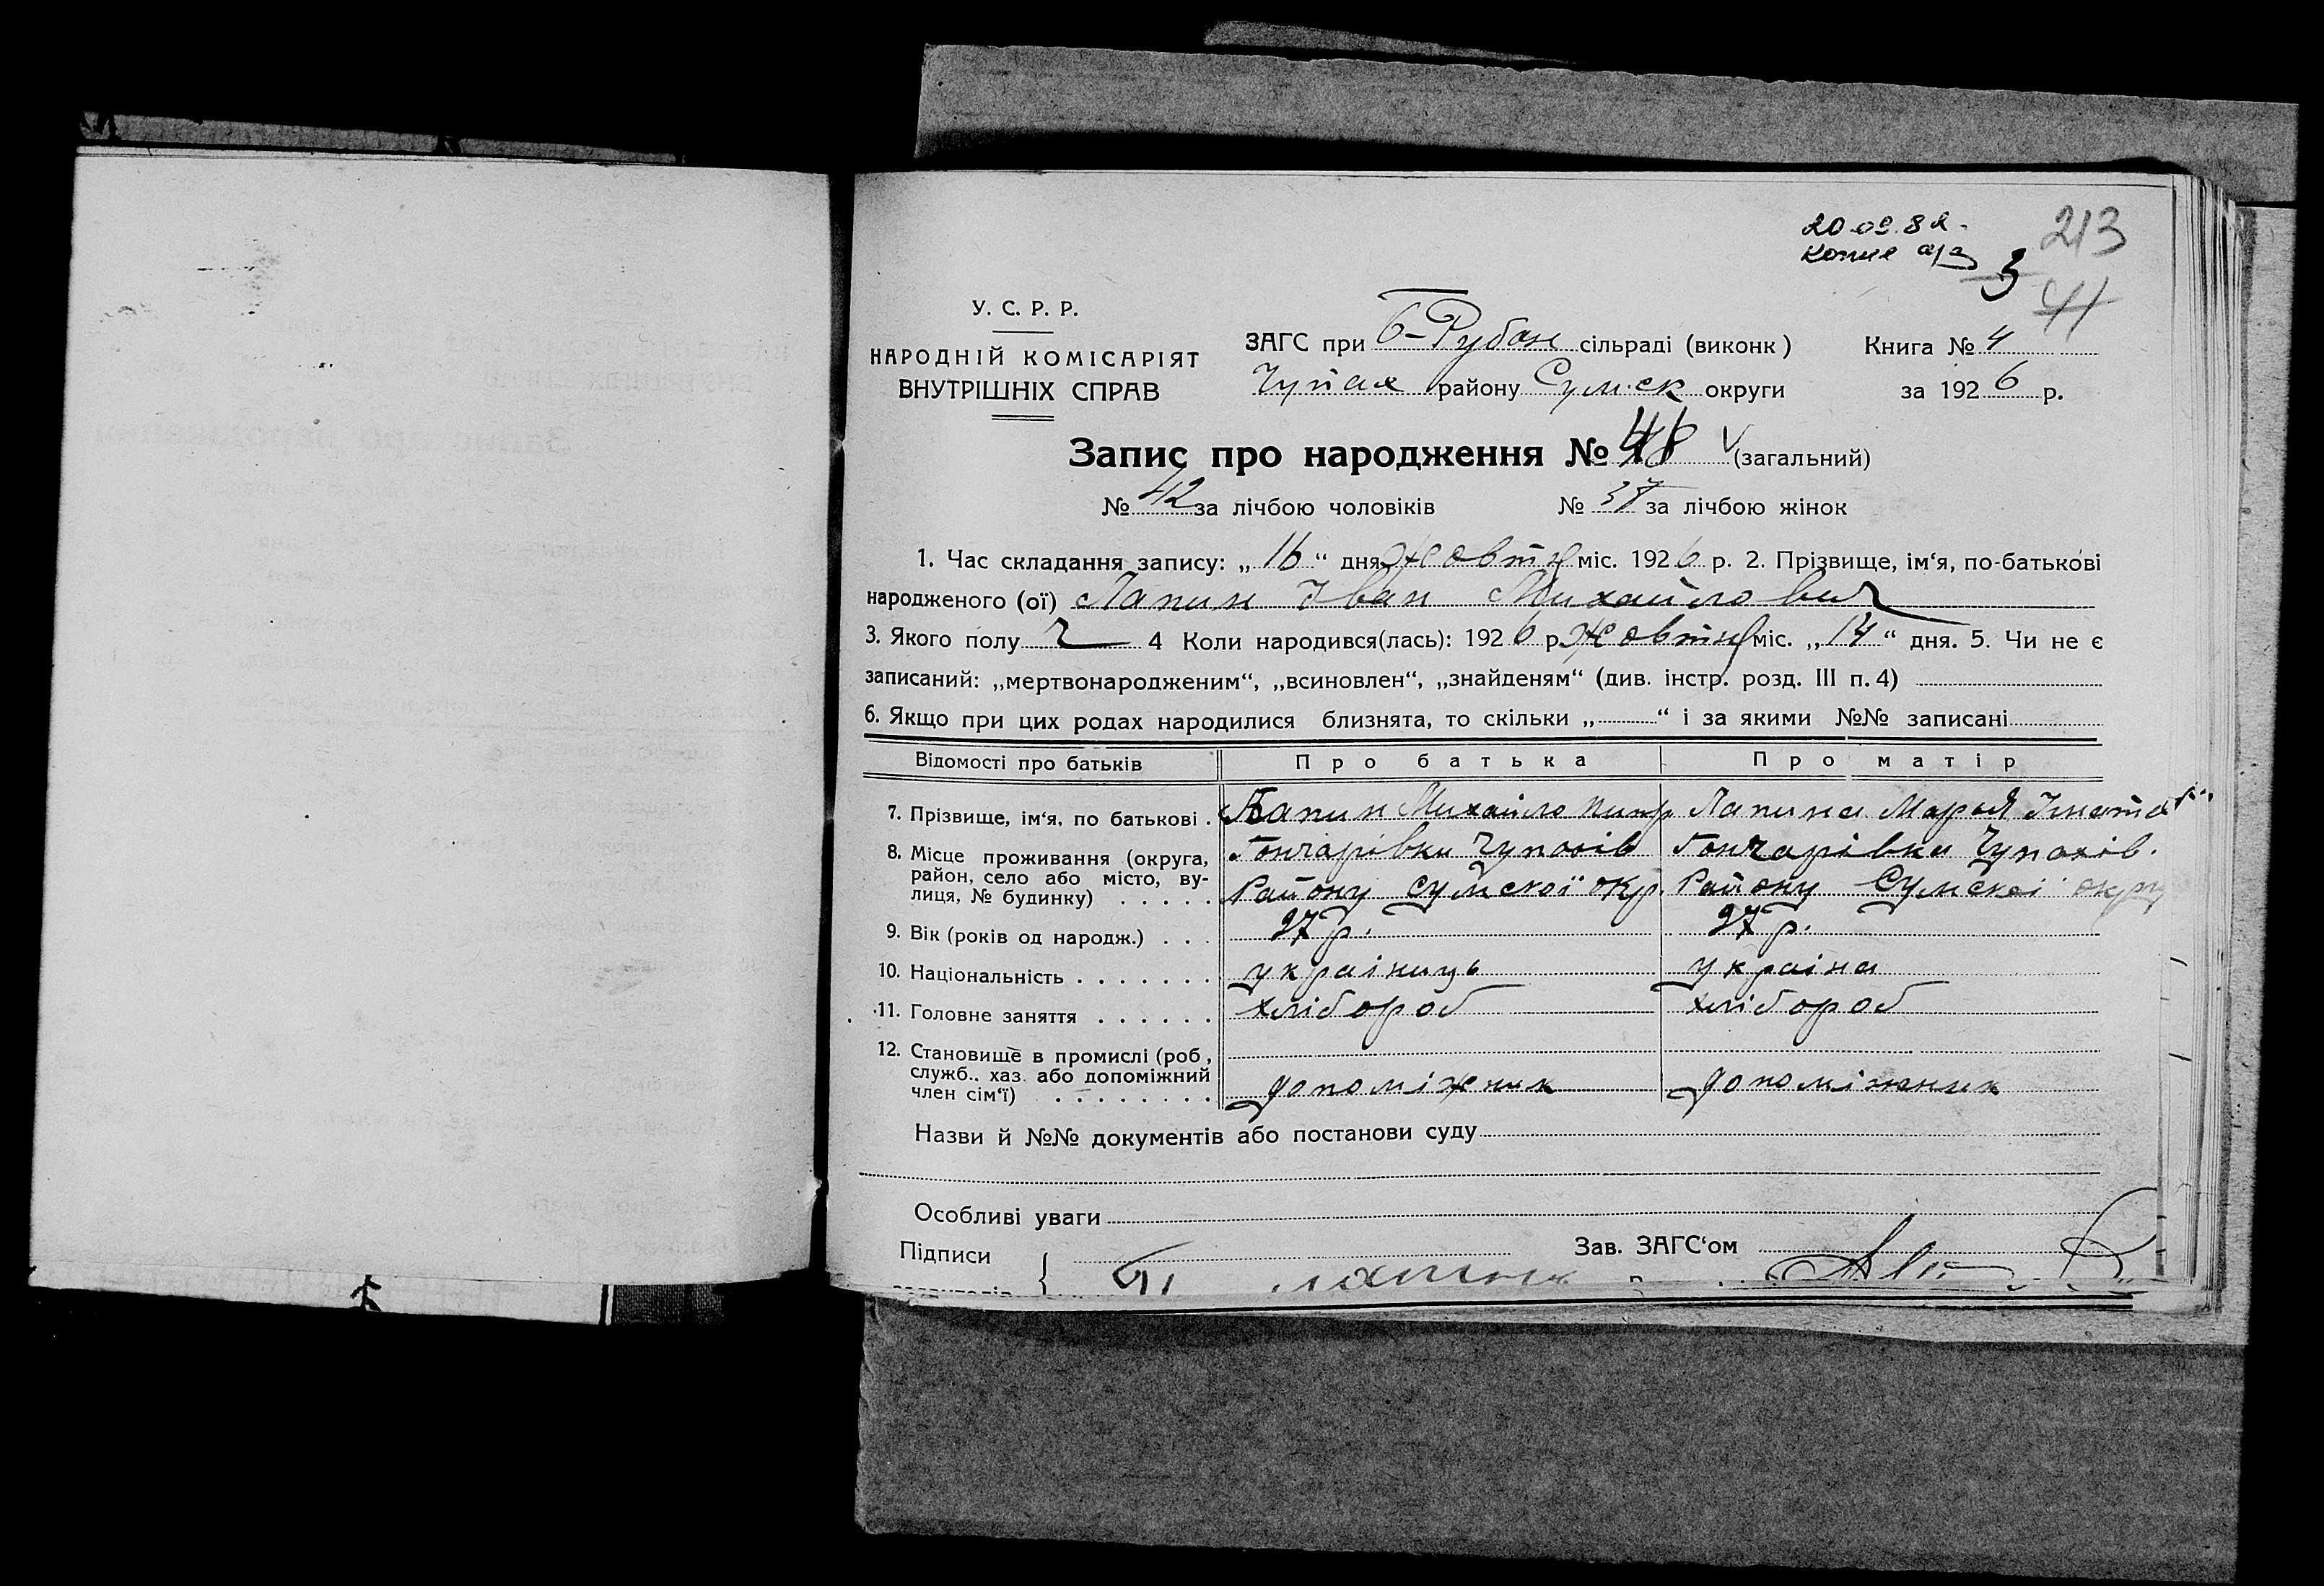 20.09.82.
копие
213
3
41
У. С. Р. Р.
НАРОДНІЙ КОМІСАРІЯТ
ВНУТРІШНІХ СПРАВ
ЗАГС при Б-Рубан сільраді (виконк)
Книга № 4
Чупах району Сумск округи
за 1926 р.
Запис про народження № (загальний)
№ 42 за лічбою чоловіків № 37 за лічбою жінок
1. Час складання запису: „16“ дня Жовтня міс. 1926 р. 2. Прізвище, ім‘я, по-батькові
народженого (ої) Лапин Іван Михайлович
3. Якого полу ч 4 Коли народився(лась): 1926 р. Жовтня міс. „14“ дня. 5. Чи не є
записаний: „мертвонародженим“, „всиновлен“, „знайденям“ (див. інстр. розд. III п. 4)
6. Якщо при цих родах народилися близнята, то скільки „ “ і за якими №№ записані
Відомості про батьків Про батька Про матір
7. Прізвище, ім‘я, по батькові . Лапин Михайло Лапина Марья
8. Місце проживання (округа, Гончарівки Чупахів Гончарівки Чупахів.
район, село або місто, ву-
лиця, № будинку) . . . . . Району Сумскої окр. Району Сумскої округ
9. Вік (років од народж.) . . . 27 р. 27 р.
10. Національність . . . . . . . украіниць украіна
11. Головне заняття . . . . . . хлібороб хлібороб
12. Становище в промислі (роб,
служб., хаз. або допоміжний
член сім‘ї) . . . . . . . . допоміжник допоміжник
Назви й №№ документів або постанови суду
Особливі уваги
Підписи
Зав. ЗАГС‘ом